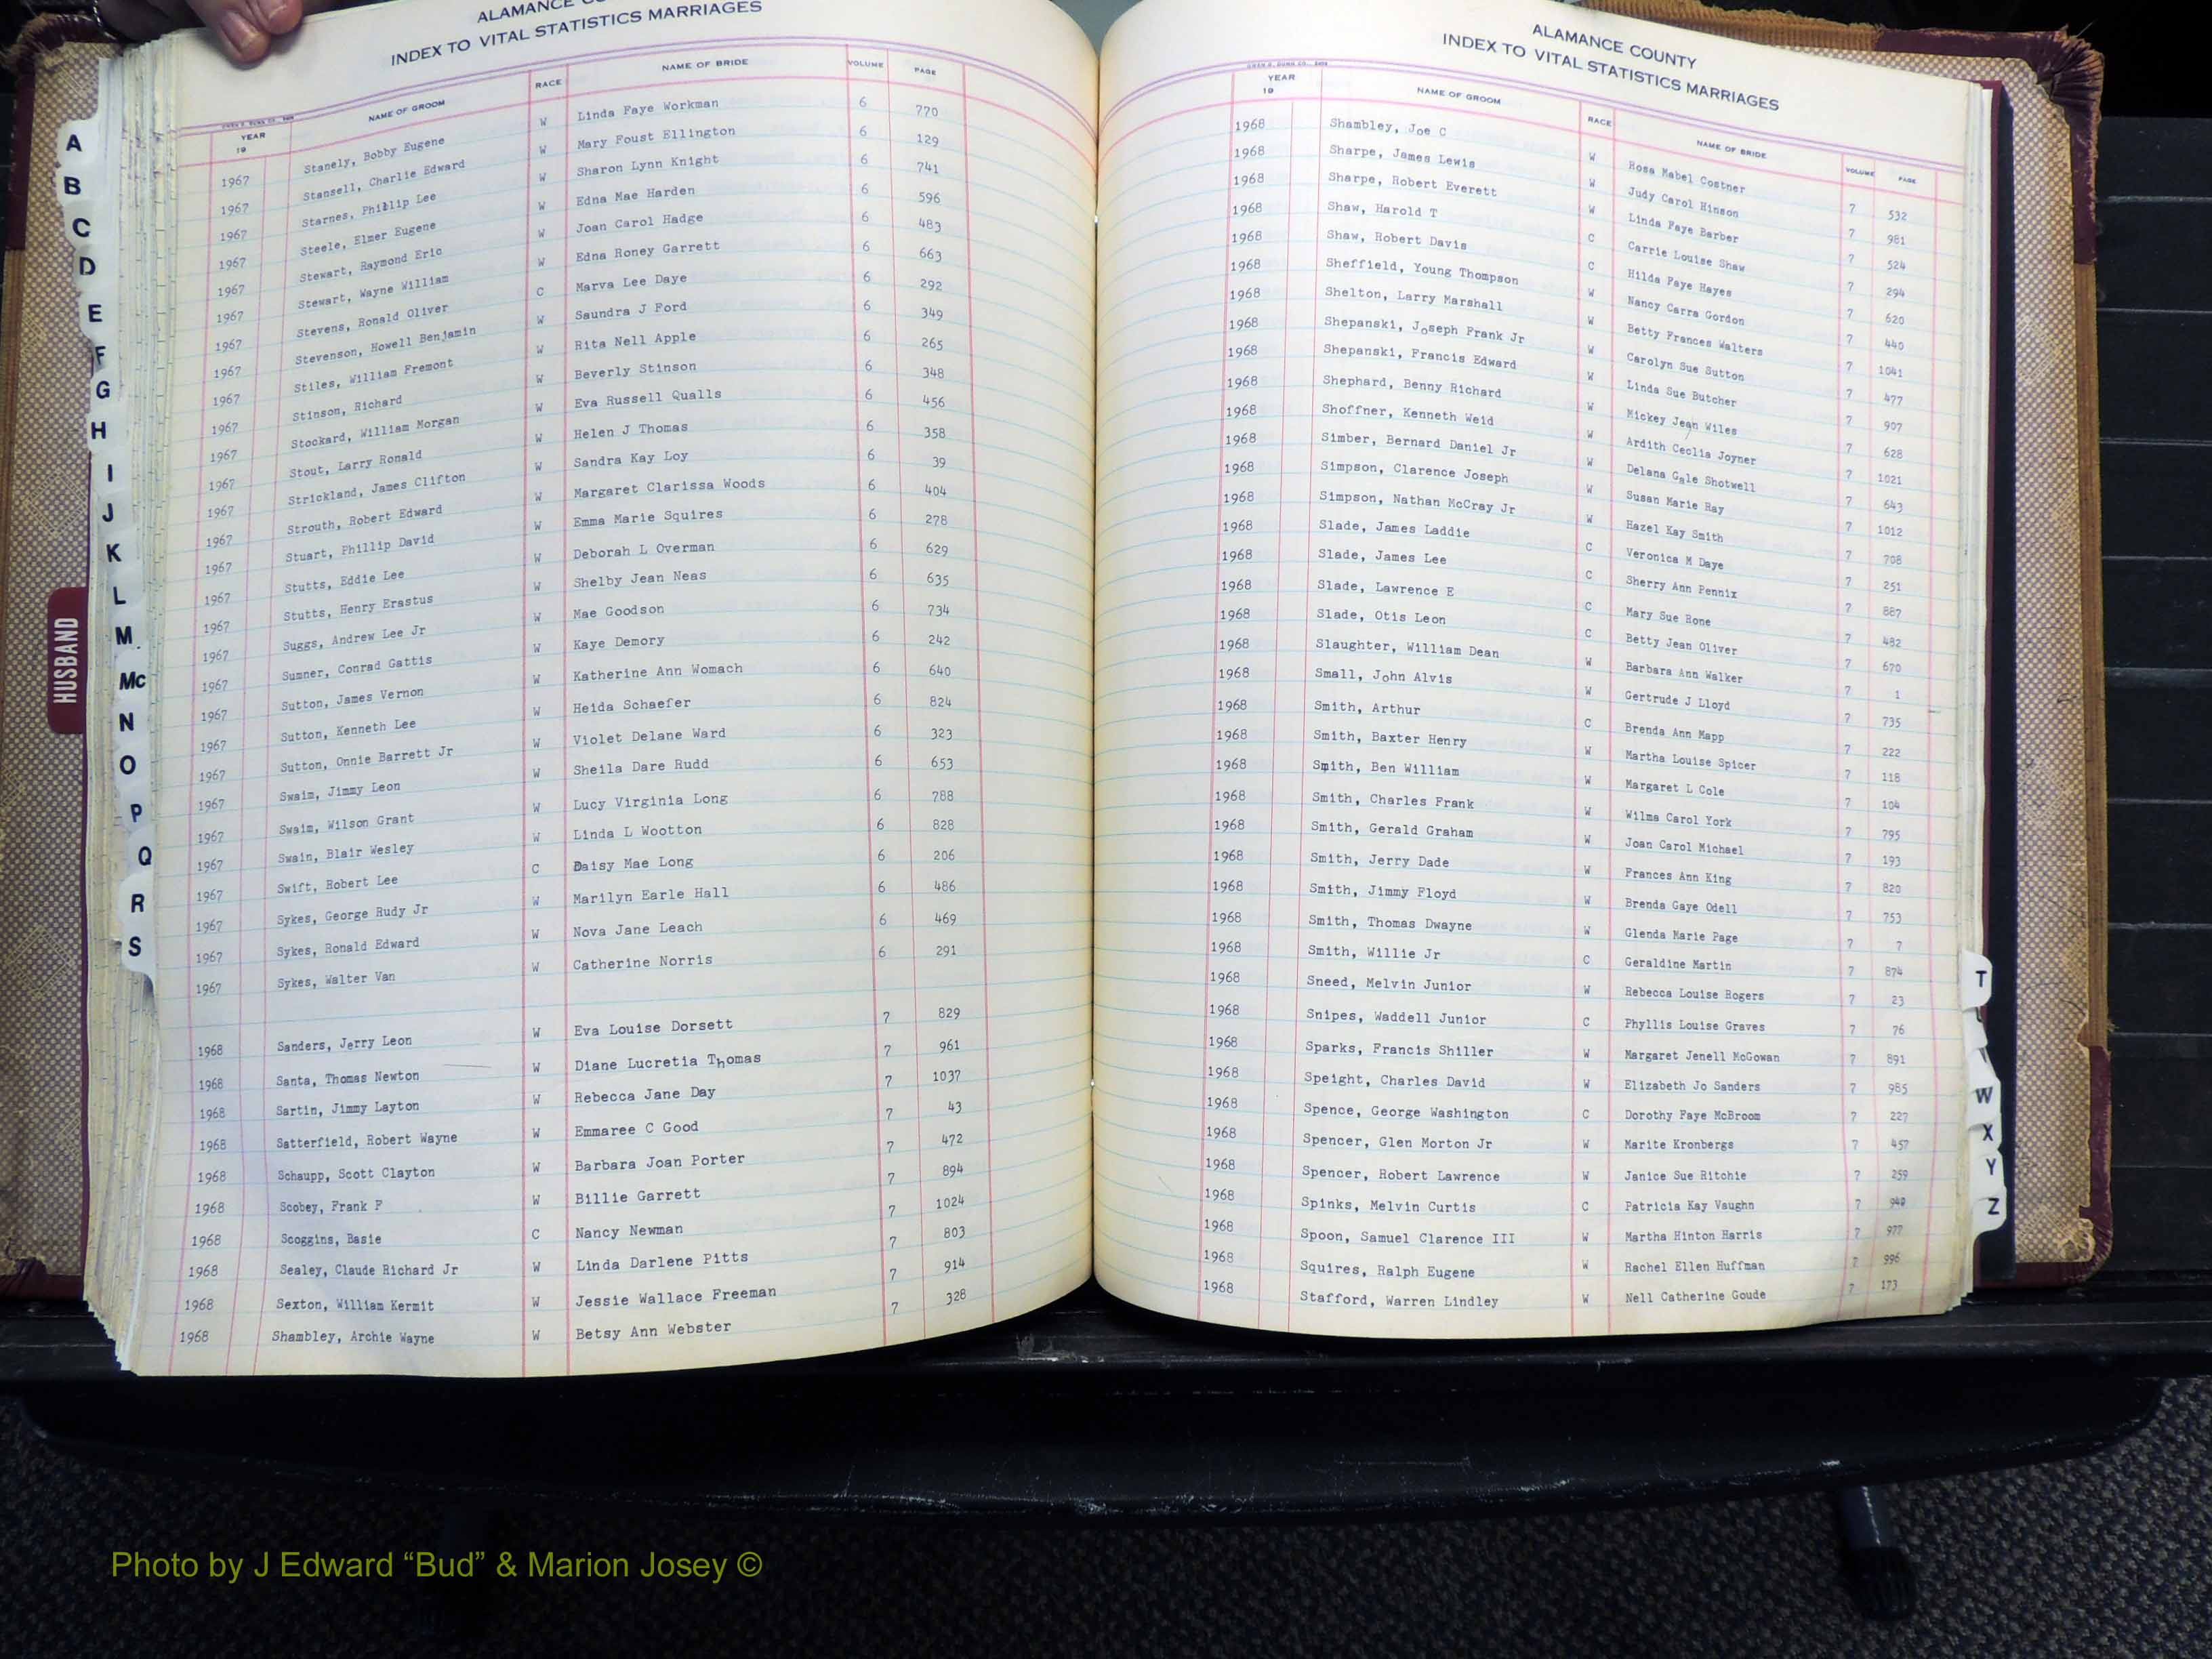 ALAMANCE CO
INDEX TO VITAL STATISTICS MARRIAGES
YEAR 19 NAME OF GROOM RACE NAME OF BRIDE VOLUME PAGE
1967 Stanely, Bobby Eugene W Linda Faye Workman 6 770
1967 Stansell, Charlie Edward W Mary Foust Ellington 6 129
1967 Starnes, Phillip Lee W Sharon Lynn Knight 6 741
1967 Steele, Elmer Eugene W Edna Mae Harden 6 596
1967 Stewart, Raymond Eric W Joan Carol Hadge 6 483
1967 Stewart, Wayne William W Edna Roney Garrett 6 663
1967 Stevens, Ronald Oliver C Marva Lee Daye 6 292
1967 Stevenson, Howell Benjamin W Saundra J Ford 6 349
1967 Stiles, William Fremont W Rita Nell Apple 6 265
1967 Stinson, Richard W Beverly Stinson 6 348
1967 Stockard, William Morgan W Eva Russell Qualls 6 456
1967 Stout, Larry Ronald W Helen J Thomas 6 358
1967 Strickland, James Clifton W Sandra Kay Loy 6 39
1967 Strouth, Robert Edward W Margaret Clarissa Woods 6 404
1967 Stuart, Phillip David W Emma Marie Squires 6 278
1967 Stutts, Eddie Lee W Deborah L Overman 6 629
1967 Stutts, Henry Erastus W Shelby Jean Neas 6 635
1967 Suggs, Andrew Lee Jr W Mae Goodson 6 734
1967 Sumner, Conrad Gattis W Kaye Demory 6 242
1967 Sutton, James Vernon W Katherine Ann Womach 6 640
1967 Sutton, Kenneth Lee W Heida Schaefer 6 824
1967 Sutton, Onnie Barrett Jr W Violet Delane Ward 6 323
1967 Swaim, Jimmy Leon W Sheila Dare Rudd 6 653
1967 Swaim, Wilson Grant W Lucy Virginia Long 6 788
1967 Swain, Blair Wesley W Linda L Wootton 6 828
1967 Swift, Robert Lee C Daisy Mae Long 6 206
1967 Sykes, George Rudy Jr W Marilyn Earle Hall 6 486
1967 Sykes, Ronald Edward W Nova Jane Leach 6 469
1967 Sykes, Walter Van W Catherine Norris 6 291
1968 Sanders, Jerry Leon W Eva Louise Dorsett 7 829
1968 Santa, Thomas Newton W Diane Lucretia Thomas 7 961
1968 Sartin, Jimmy Layton W Rebecca Jane Day 7 1037
1968 Satterfield, Robert Wayne W Emmaree C Good 7 43
1968 Schaupp, Scott Clayton W Barbara Joan Porter 7 472
1968 Scobey, Frank F W Billie Garrett 7 894
1968 Scoggins, Basie C Nancy Newman 7 1024
1968 Sealey, Claude Richard Jr W Linda Darlene Pitts 7 803
1968 Sexton, William Kermit W Jessie Wallace Freeman 7 914
1968 Shambley, Archie Wayne W Betsy Ann Webster 7 328
A
B
C
D
E
F
G
H
I
J
K
L
M
Mc
N
O
P
Q
R
S
HUSBAND
ALAMANCE COUNTY
INDEX TO VITAL STATISTICS MARRIAGES
YEAR 19 NAME OF GROOM RACE NAME OF BRIDE VOLUME PAGE
1968 Shambley, Joe C W Rosa Mabel Costner 7 532
1968 Sharpe, James Lewis W Judy Carol Hinson 7 981
1968 Sharpe, Robert Everett W Linda Faye Barber 7 524
1968 Shaw, Harold T C Carrie Louise Shaw 7 294
1968 Shaw, Robert Davis C Hilda Faye Hayes 7 620
1968 Sheffield, Young Thompson W Nancy Carra Gordon 7 440
1968 Shelton, Larry Marshall W Betty Frances Walters 7 1041
1968 Shepanski, Joseph Frank Jr W Carolyn Sue Sutton 7 477
1968 Shepanski, Francis Edward W Linda Sue Butcher 7 907
1968 Shephard, Benny Richard W Mickey Jean Wiles 7 628
1968 Shoffner, Kenneth Weid W Ardith Ceclia Joyner 7 1021
1968 Simber, Bernard Daniel Jr W Delana Gale Shotwell 7 643
1968 Simpson, Clarence Joseph W Susan Marie Ray 7 1012
1968 Simpson, Nathan McCray Jr W Hazel Kay Smith 7 708
1968 Slade, James Laddie C Veronica M Daye 7 251
1968 Slade, James Lee C Sherry Ann Pennix 7 887
1968 Slade, Lawrence E C Mary Sue Rone 7 482
1968 Slade, Otis Leon C Betty Jean Oliver 7 670
1968 Slaughter, William Dean W Barbara Ann Walker 7 1
1968 Small, John Alvis W Gertrude J Lloyd 7 735
1968 Smith, Arthur C Brenda Ann Mapp 7 222
1968 Smith, Baxter Henry W Martha Louise Spicer 7 118
1968 Smith, Ben William W Margaret L Cole 7 104
1968 Smith, Charles Frank W Wilma Carol York 7 795
1968 Smith, Gerald Graham W Joan Carol Michael 7 193
1968 Smith, Jerry Dade W Frances Ann King 7 820
1968 Smith, Jimmy Floyd W Brenda Gaye Odell 7 753
1968 Smith, Thomas Dwayne W Glenda Marie Page 7 7
1968 Smith, Willie Jr C Geraldine Martin 7 874
1968 Sneed, Melvin Junior W Rebecca Louise Rogers 7 23
1968 Snipes, Waddell Junior C Phyllis Louise Graves 7 76
1968 Sparks, Francis Shiller W Margaret Jenell McGowan 7 891
1968 Speight, Charles David W Elizabeth Jo Sanders 7 985
1968 Spence, George Washington C Dorothy Faye McBroom 7 227
1968 Spencer, Glen Morton Jr W Marite Kronbergs 7 457
1968 Spencer, Robert Lawrence W Janice Sue Ritchie 7 259
1968 Spinks, Melvin Curtis C Patricia Kay Vaughn 7 940
1968 Spoon, Samuel Clarence III W Martha Hinton Harris 7 977
1968 Squires, Ralph Eugene W Rachel Ellen Huffman 7 996
1968 Stafford, Warren Lindley W Nell Catherine Goude 7 173
T
W
X
Y
Z
Photo by J Edward “Bud” & Marion Josey ©